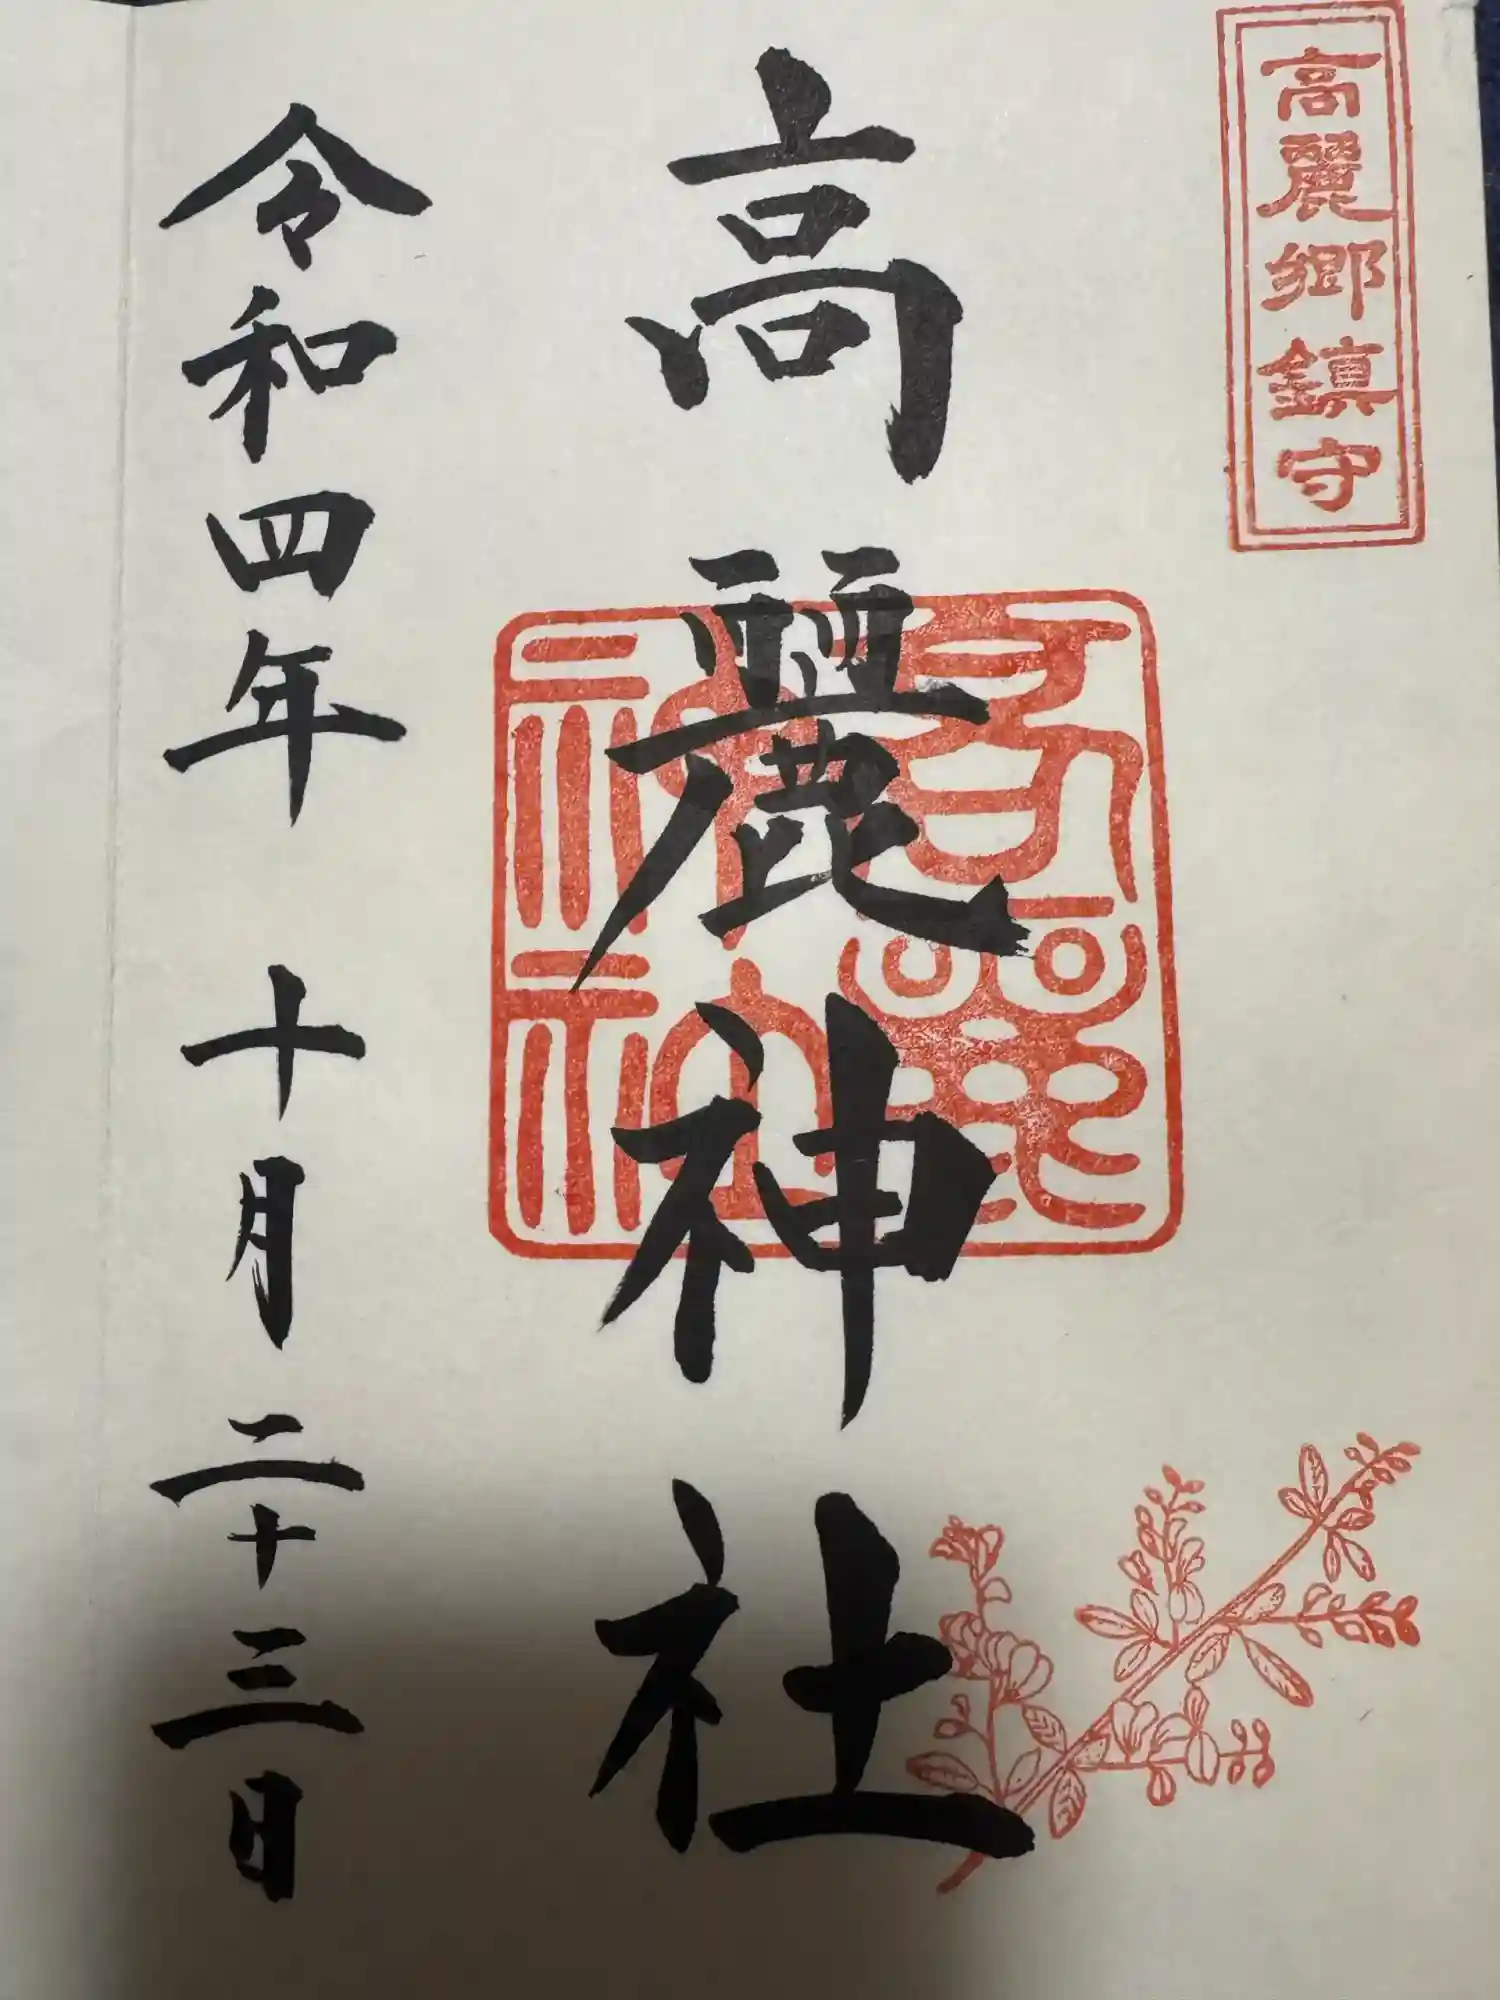 高麗郷鎮守
高麗神社
高麗神社
令和四年 十月 二十三日